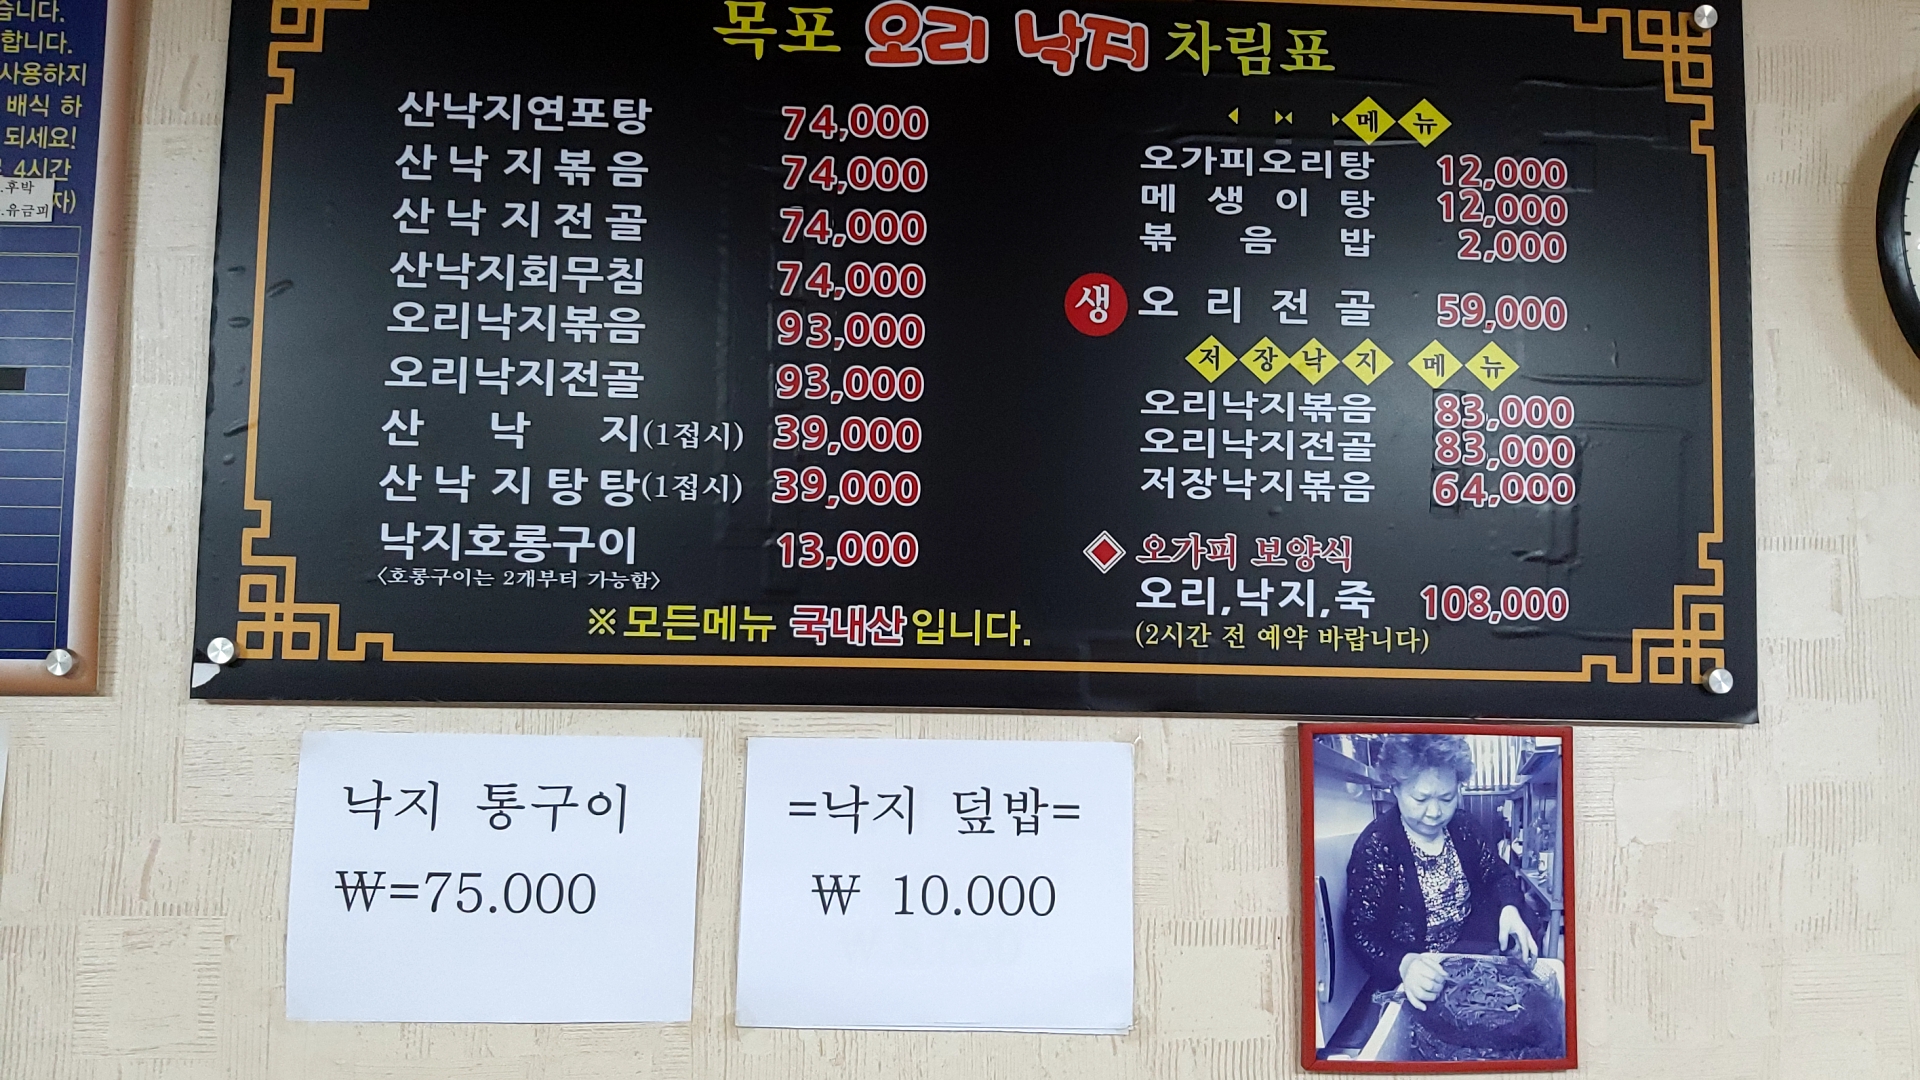 습니다.
합니다.
사용하지
배식 하
되세요!
4시간
자)
.후박
.유금피
목포 오리 낙지 차림표
산낙지연포탕 74,000
산낙지볶음 74,000
산낙지전골 74,000
산낙지회무침 74,000
오리낙지볶음 93,000
오리낙지전골 93,000
산 낙 지(1접시) 39,000
산낙지탕탕(1접시) 39,000
낙지호롱구이 13,000
<호롱구이는 2개부터 가능함>
※모든메뉴 국내산입니다.
메뉴
오가피오리탕 12,000
메 생 이 탕 12,000
볶 음 밥 2,000
생 오 리 전 골 59,000
저장낙지 메뉴
오리낙지볶음 83,000
오리낙지전골 83,000
저장낙지볶음 64,000
오가피 보양식
오리,낙지,죽 108,000
(2시간 전 예약 바랍니다)
낙지 통구이
₩=75.000
=낙지 덮밥=
₩ 10.000